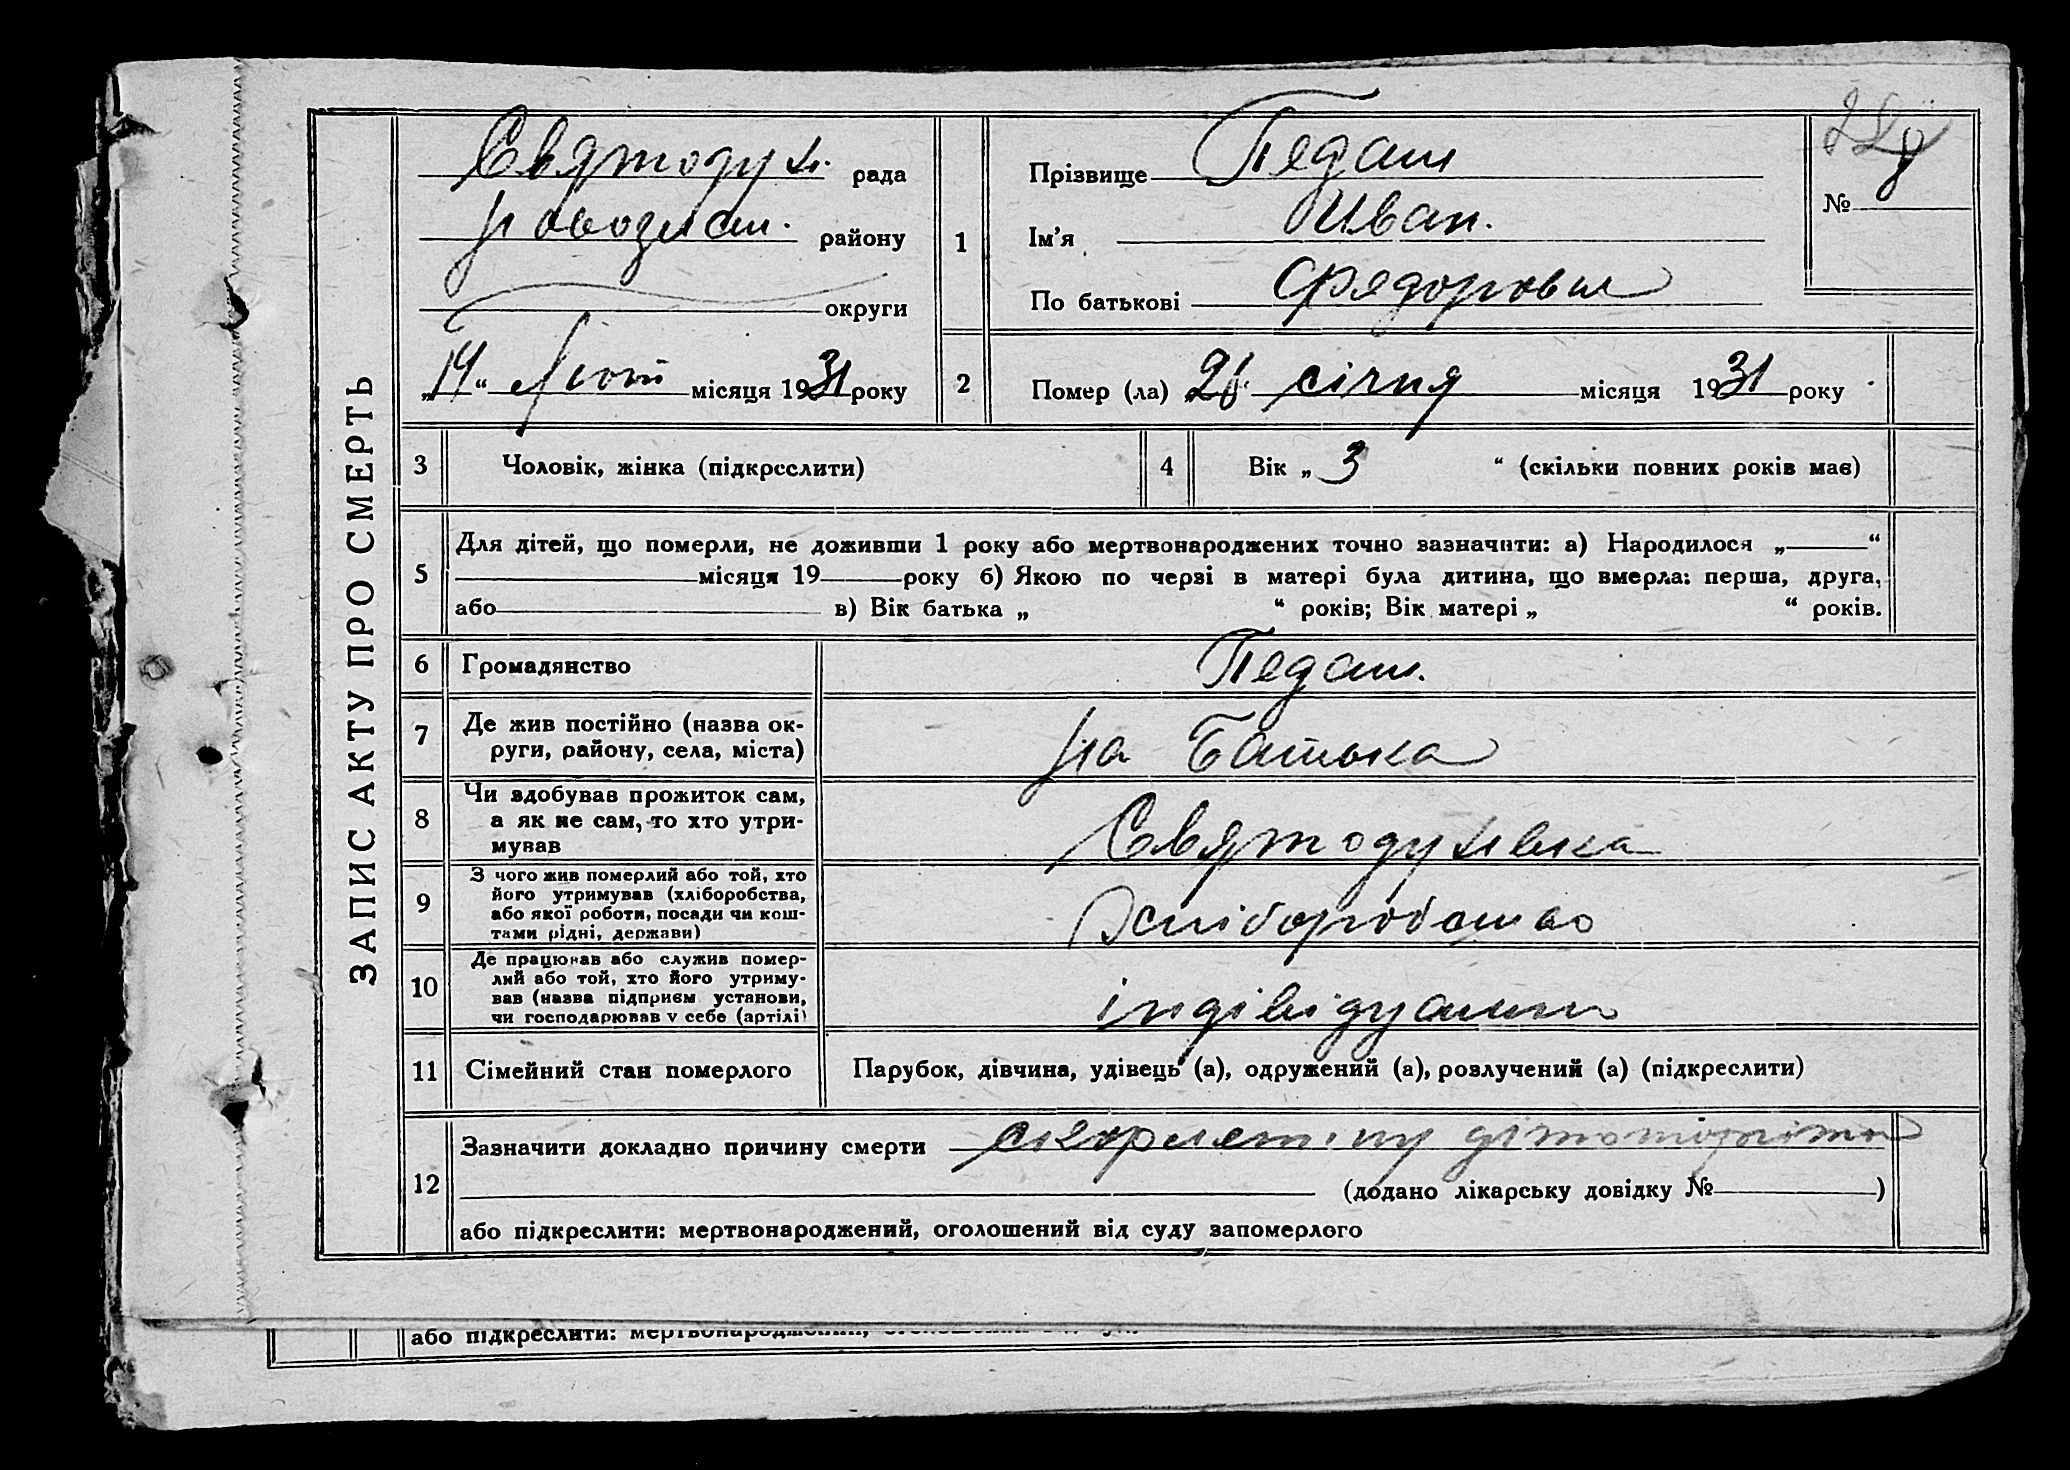 ЗАПИС АКТУ ПРО СМЕРТЬ
Святодух. рада
району
округи
„14“ Лютий місяця 1931 року
1
Прізвище Педаш
Ім'я Иван.
По батькові Фядорович
№ 8
2
Помер (ла) 26 січня місяця 1931 року
3 Чоловік, жінка (підкреслити)
4 Вік „ 3 “ (скільки повних років має)
5 Для дітей, що померли, не доживши 1 року або мертвонароджених точно зазначити: а) Народилося „ “
місяця 19 року б) Якою по черзі в матері була дитина, що вмерла: перша, друга,
або в) Вік батька „ “ років; Вік матері „ “ років.
6 Громадянство Педаш.
7 Де жив постійно (назва ок-
руги, району, села, міста) на Батька
8 Чи здобував прожиток сам,
а як не сам, то хто утри-
мував Святодухівка
9 З чого жив померлий або той, хто
його утримував (хліборобства,
або якої роботи, посади чи кош-
тами рідні, держави) хліборобство
10 Де працював або служив помер-
лий або той, хто його утриму-
вав (назва підприєм установи,
чи господарював у себе (артілі)
11 Сімейний стан померлого Парубок, дівчина, удівець (а), одружений (а), розлучений (а) (підкреслити)
12 Зазначити докладно причину смерти
(додано лікарську довідку № )
або підкреслити: мертвонароджений, оголошений від суду запомерлого
або підкреслити: